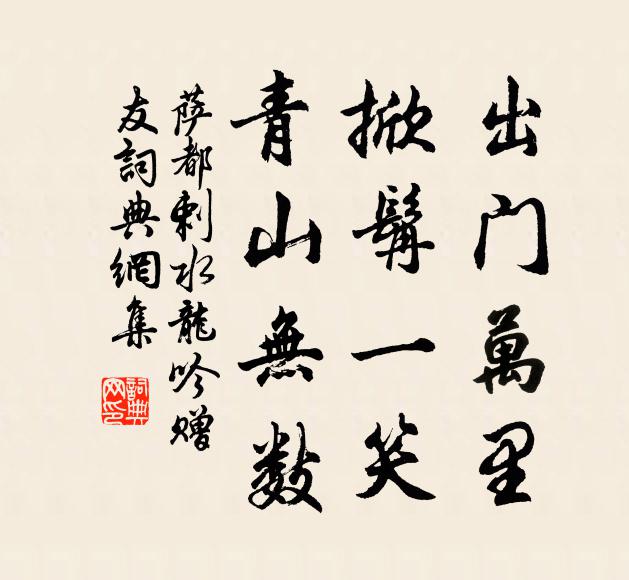 出門萬里
掀髯一笑
青山無數
薩都剌水龍吟贈
友詞典網集
詞典
网印